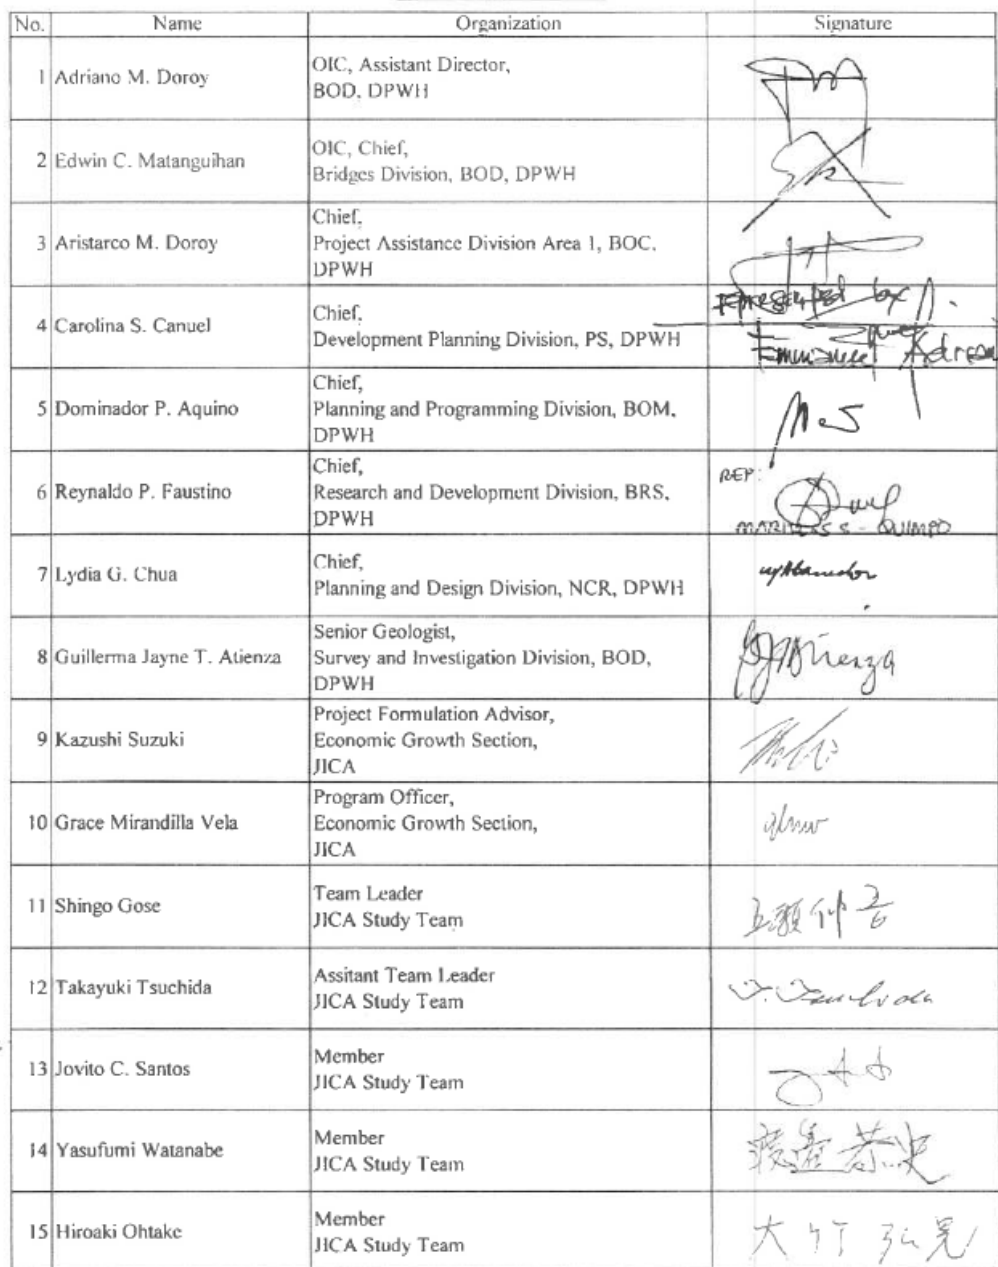 No. Name Organization Signature
1 Adriano M. Doroy
OIC, Assistant Director,
BOD, DPWH
2 Edwin C. Matanguihan
OIC, Chief,
Bridges Division, BOD, DPWH
3 Aristarco M. Doroy
Chief,
Project Assistance Division Area 1, BOC,
DPWH
4 Carolina S. Canuel
Chief,
Development Planning Division, PS, DPWH
represented by
Emmanuel
5 Dominador P. Aquino
Chief,
Planning and Programming Division, BOM,
DPWH
6 Reynaldo P. Faustino
Chief,
Research and Development Division, BRS,
DPWH
REP:
QUIMPO
7 Lydia G. Chua
Chief,
Planning and Design Division, NCR, DPWH
8 Guillerma Jayne T. Atienza
Senior Geologist,
Survey and Investigation Division, BOD,
DPWH
GJAtienza
9 Kazushi Suzuki
Project Formulation Advisor,
Economic Growth Section,
JICA
10 Grace Mirandilla Vela
Program Officer,
Economic Growth Section,
JICA
11 Shingo Gose
Team Leader
JICA Study Team
12 Takayuki Tsuchida
Assitant Team Leader
JICA Study Team
T. Tsuchida
13 Jovito C. Santos
Member
JICA Study Team
14 Yasufumi Watanabe
Member
JICA Study Team
渡邉 恭史
15 Hiroaki Ohtake
Member
JICA Study Team
大竹 弘晃